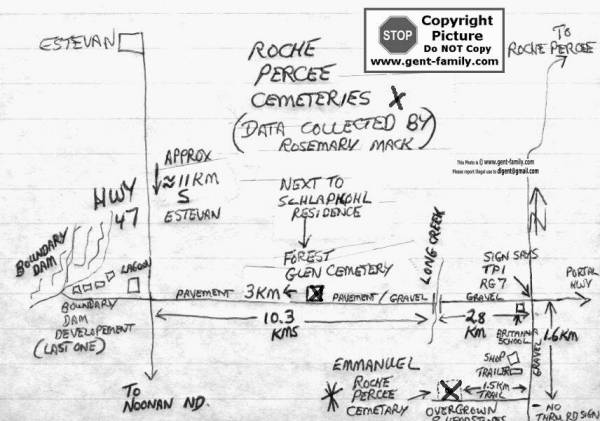 ESTEVAN
ROCHE
PERCEE
CEMETERIES
(DATA COLLECTED BY
ROSEMARY MACK)
STOP
Copyright
Picture
Do NOT Copy
www.gent-family.com
TO
ROCHE PERCEE
This Photo is © www.gent-family.com
Please report illegal use to digent@gmail.com
APPROX
≈ 11 KM
S
ESTEVAN
HWY
47
NEXT TO
SCHLAPKOHL
RESIDENCE
FOREST
GLEN CEMETERY
LONG CREEK
SIGN SAYS
TP1
RG 7
PORTAL
HWY
BOUNDARY
DAM
LAGOON
PAVEMENT 3KM
PAVEMENT / GRAVEL
GRAVEL
BOUNDARY
DAM
DEVELOPEMENT
(LAST ONE)
10.3
KMS
2.8
KM
BRITANNIA
SCHOOL
GRAVEL
1.6KM
EMMANUEL
ROCHE
PERCEE
CEMETARY
SHOP
TRAILER
1.5KM
TRAIL
OVERGROWN
TO
NOONAN ND.
- NO
THRU RD SIGN